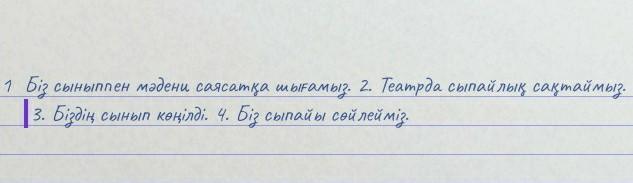 1 Біз сыныппен мәдени саясатқа шығамыз. 2. Театрда сыпайлық сақтаймыз.
3. Біздің сынып көңілді. 4. Біз сыпайы сөйлейміз.